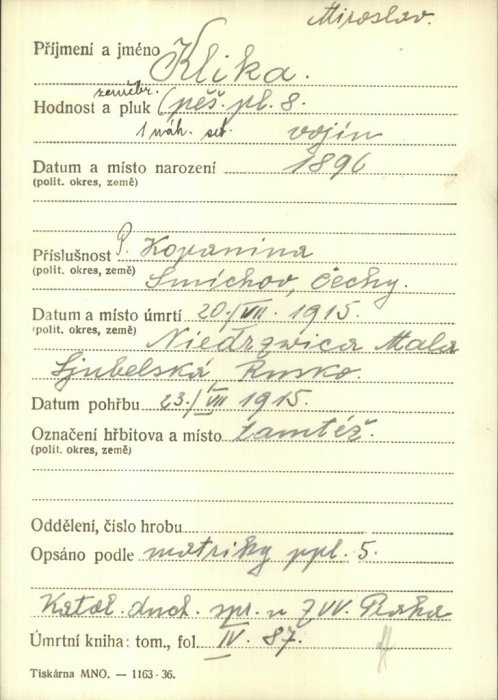 Miroslav.
Příjmení a jméno Klika.
zeměbr.
Hodnost a pluk (pěš. pl. 8.
1 náh. set. vojín
Datum a místo narození 1896
(polit. okres, země)
Příslušnost P. Kopanina
(polit. okres, země) Smíchov, Čechy.
Datum a místo úmrtí 20./VII. 1915.
(polit. okres, země) Niedrzwica Mala
Ljubelská Rusko.
Datum pohřbu 23./VII 1915.
Označení hřbitova a místo tamtéž.
(polit. okres, země)
Oddělení, číslo hrobu
Opsáno podle matriky ppl. 5.
Katol. duch. spr. u ZVV. Praha
Úmrtní kniha: tom., fol. IV. 87.
Tiskárna MNO. — 1163-36.